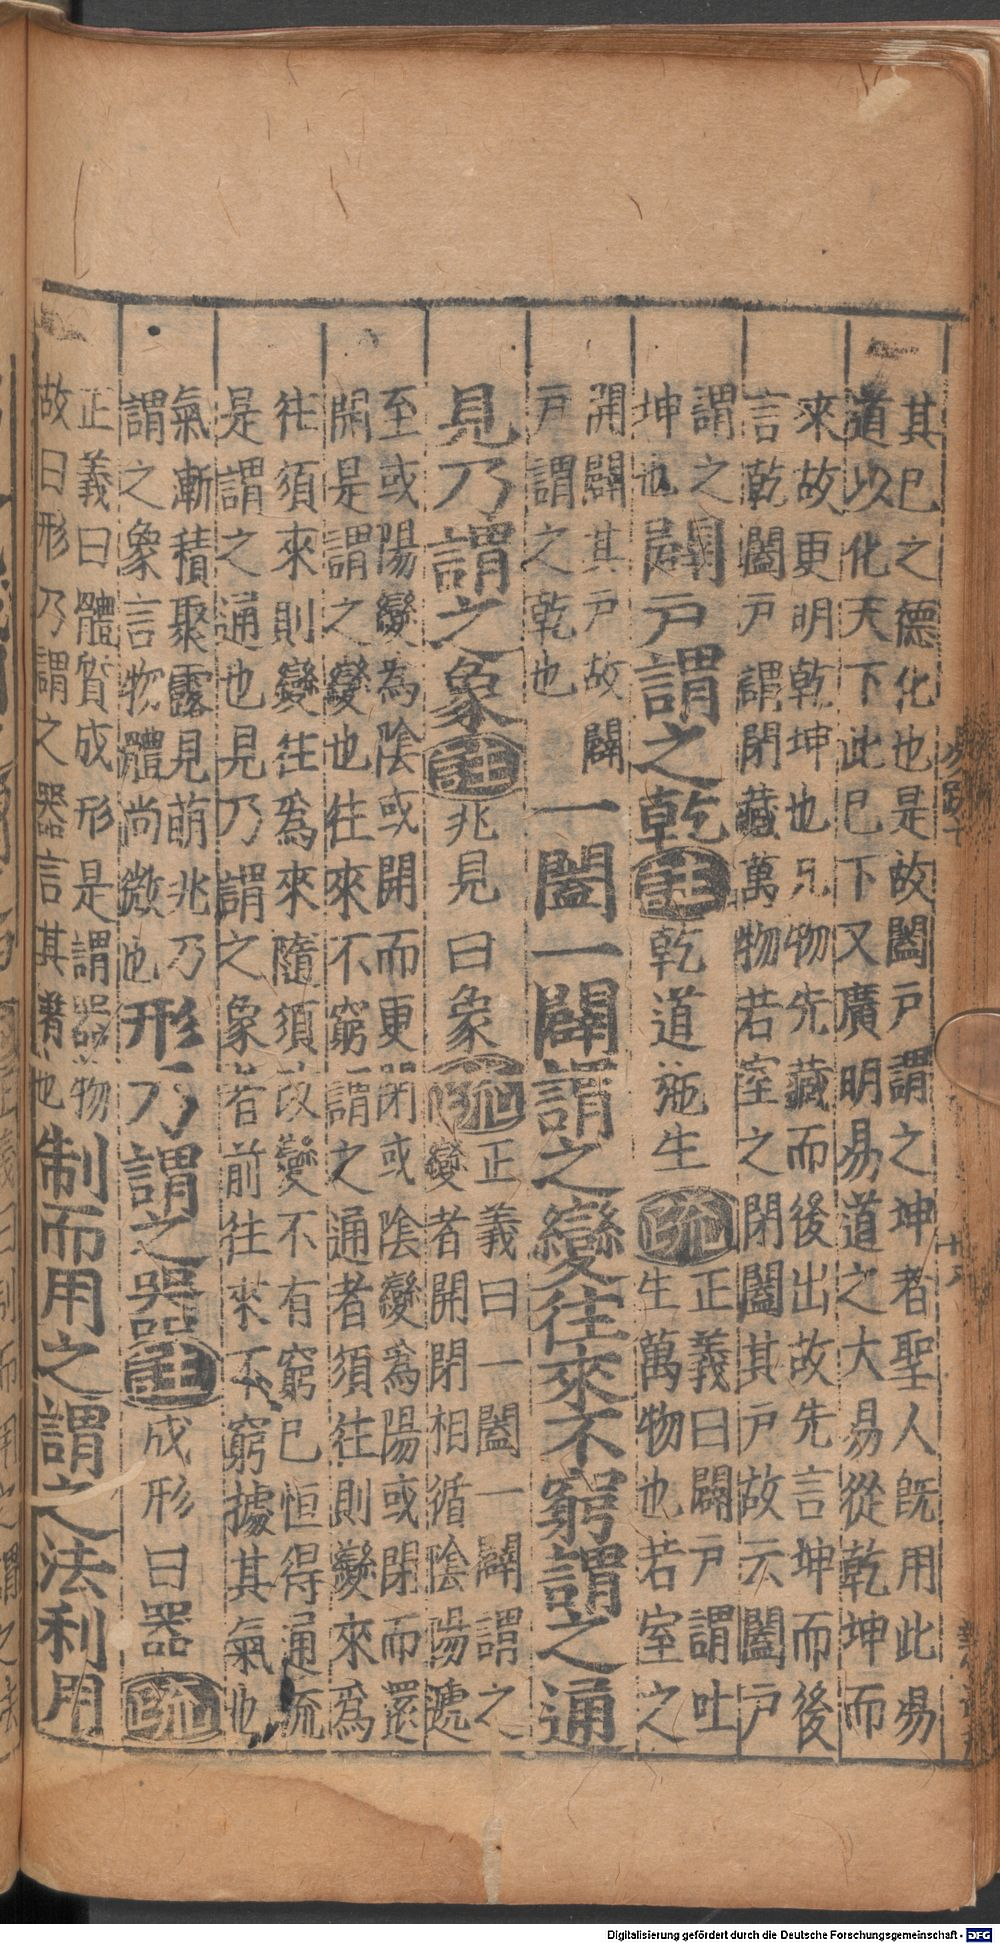 其巳之德化也是故闔戶謂之坤者聖人既用此易
道以化天下此巳下又廣明易道之大易從乾坤而
來故更明乾坤也凡物先藏而後出故先言坤而後
言乾闔戶謂閉藏萬物若室之閉闔其戶故云闔戶
謂之
坤也
闢戶謂之乾註乾道施生疏
正義曰闢戶謂吐
生萬物也若室之
開闢其戶故闢
戶謂之乾也
一闔一闢謂之變往來不窮謂之通
見乃謂之象註兆見曰象疏
正義曰一闔一闢謂之
變者開閉相循陰陽遞
至或陽變為陰或開而更閉或陰變爲陽或閉而還
開是謂之變也往來不窮謂之通者須往則變來爲
往須來則變往爲來隨須改變不有窮巳恒得通流
是謂之通也見乃謂之象者前往來不窮據其氣也
氣漸積聚露見萌兆乃
謂之象言物體尚微也
形乃謂之器註成形曰器疏
正義曰體質成形是謂器物
故曰形乃謂之器言其著也
制而用之謂之法利用
Digitalisierung gefördert durch die Deutsche Forschungsgemeinschaft - DFG